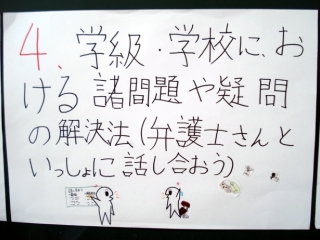 4、学級・学校に、お
ける諸問題や疑問
の解決法、(弁護士さんと
いっしょに話し合おう)